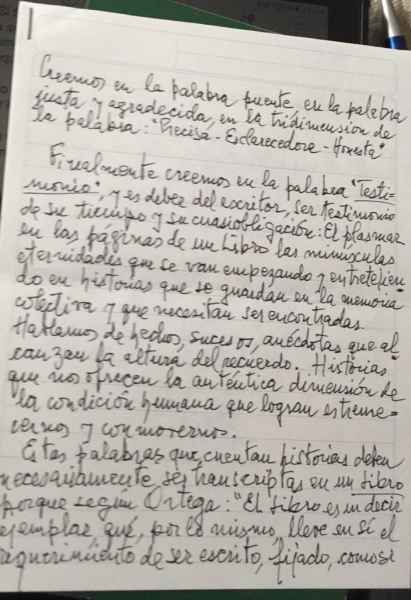 Creemos en la palabra puente en la palabra
justa y agradecida, en la tridimensión de
la palabra: "Precisa - Esclarecedora - Honesta"
Finalmente creemos en la palabra "Testi-
monio", y es deber del escritor, ser testimonio
de su tiempo y su cuasiobligación: El plasmar
en las páginas de un Libro las minúsculas
eternidades que se van empezando y entretejien-
do en historias que se guardan en la memoria
colectiva y que necesitan ser encontradas.
Hablamos de hechos, sucesos, anécdotas que al
canzan la altura del recuerdo. Historias
que nos ofrecen la auténtica dimensión de
la condición humana que logran estreme-
cernos y conmovernos.
Estas palabras que cuentan historias deben
necesariamente ser transcriptas en un Libro
porque según Ortega: "El Libro es un decir
ejemplar que, por lo mismo, lleve en sí el
requerimiento de ser escrito, fijado, como si